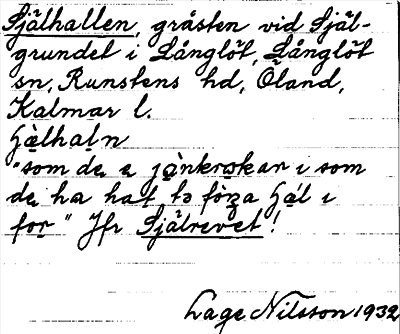 Själhallen, gråsten vid Själ-
grundet i Långlöt, Långlöt
sn, Runstens hd, Öland,
Kalmar l.
"som de a i som
de ha hat
for" Jfr Själrevet!
Lage Nilsson 1932